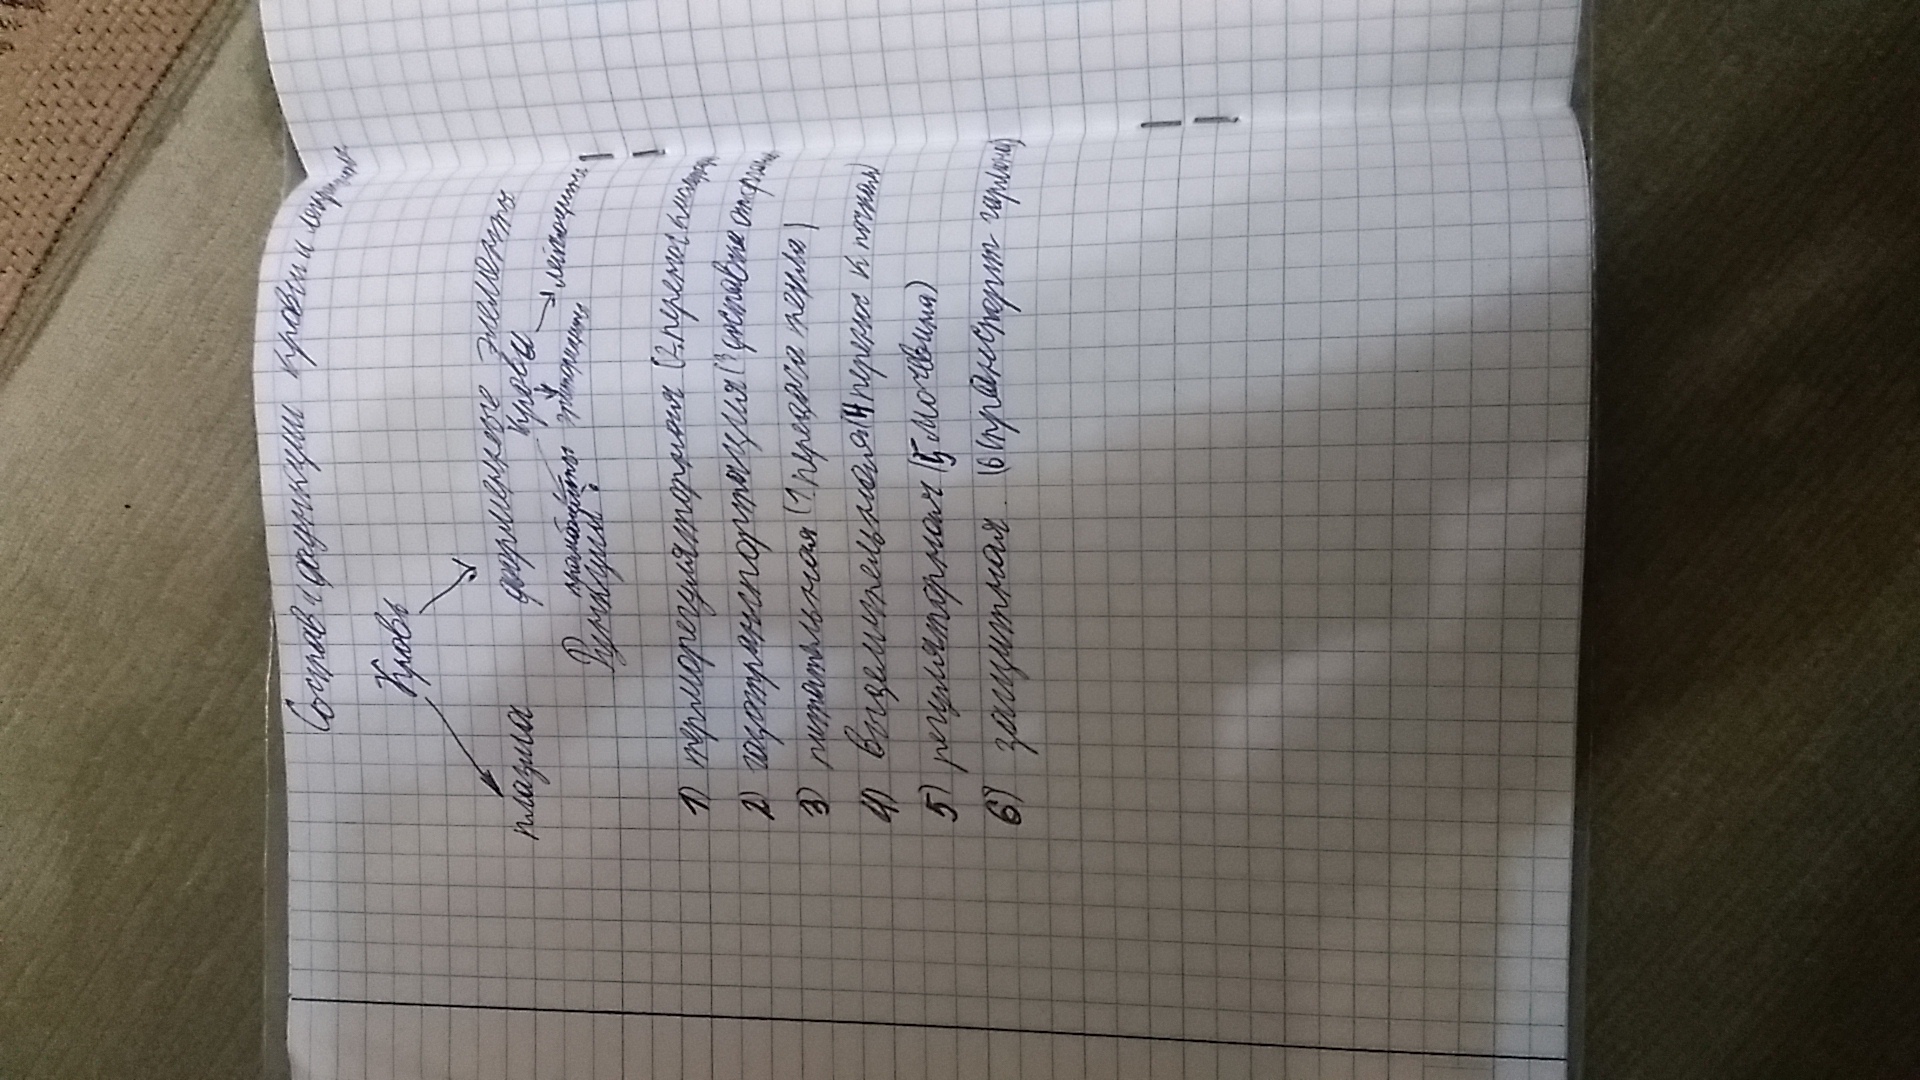 Состав и функции крови и лимфы
Кровь
плазма форменные элементы
крови
тромбоциты эритроциты лейкоциты
Функции:
1) терморегуляторная (2 перенос
2) газотранспортная (3 доставка
3) питательная (1 передача тепла)
4) выделительная (4 перенос к почкам)
5) регуляторная (5 мочевина)
6) защитная (6 транспорт гормона)